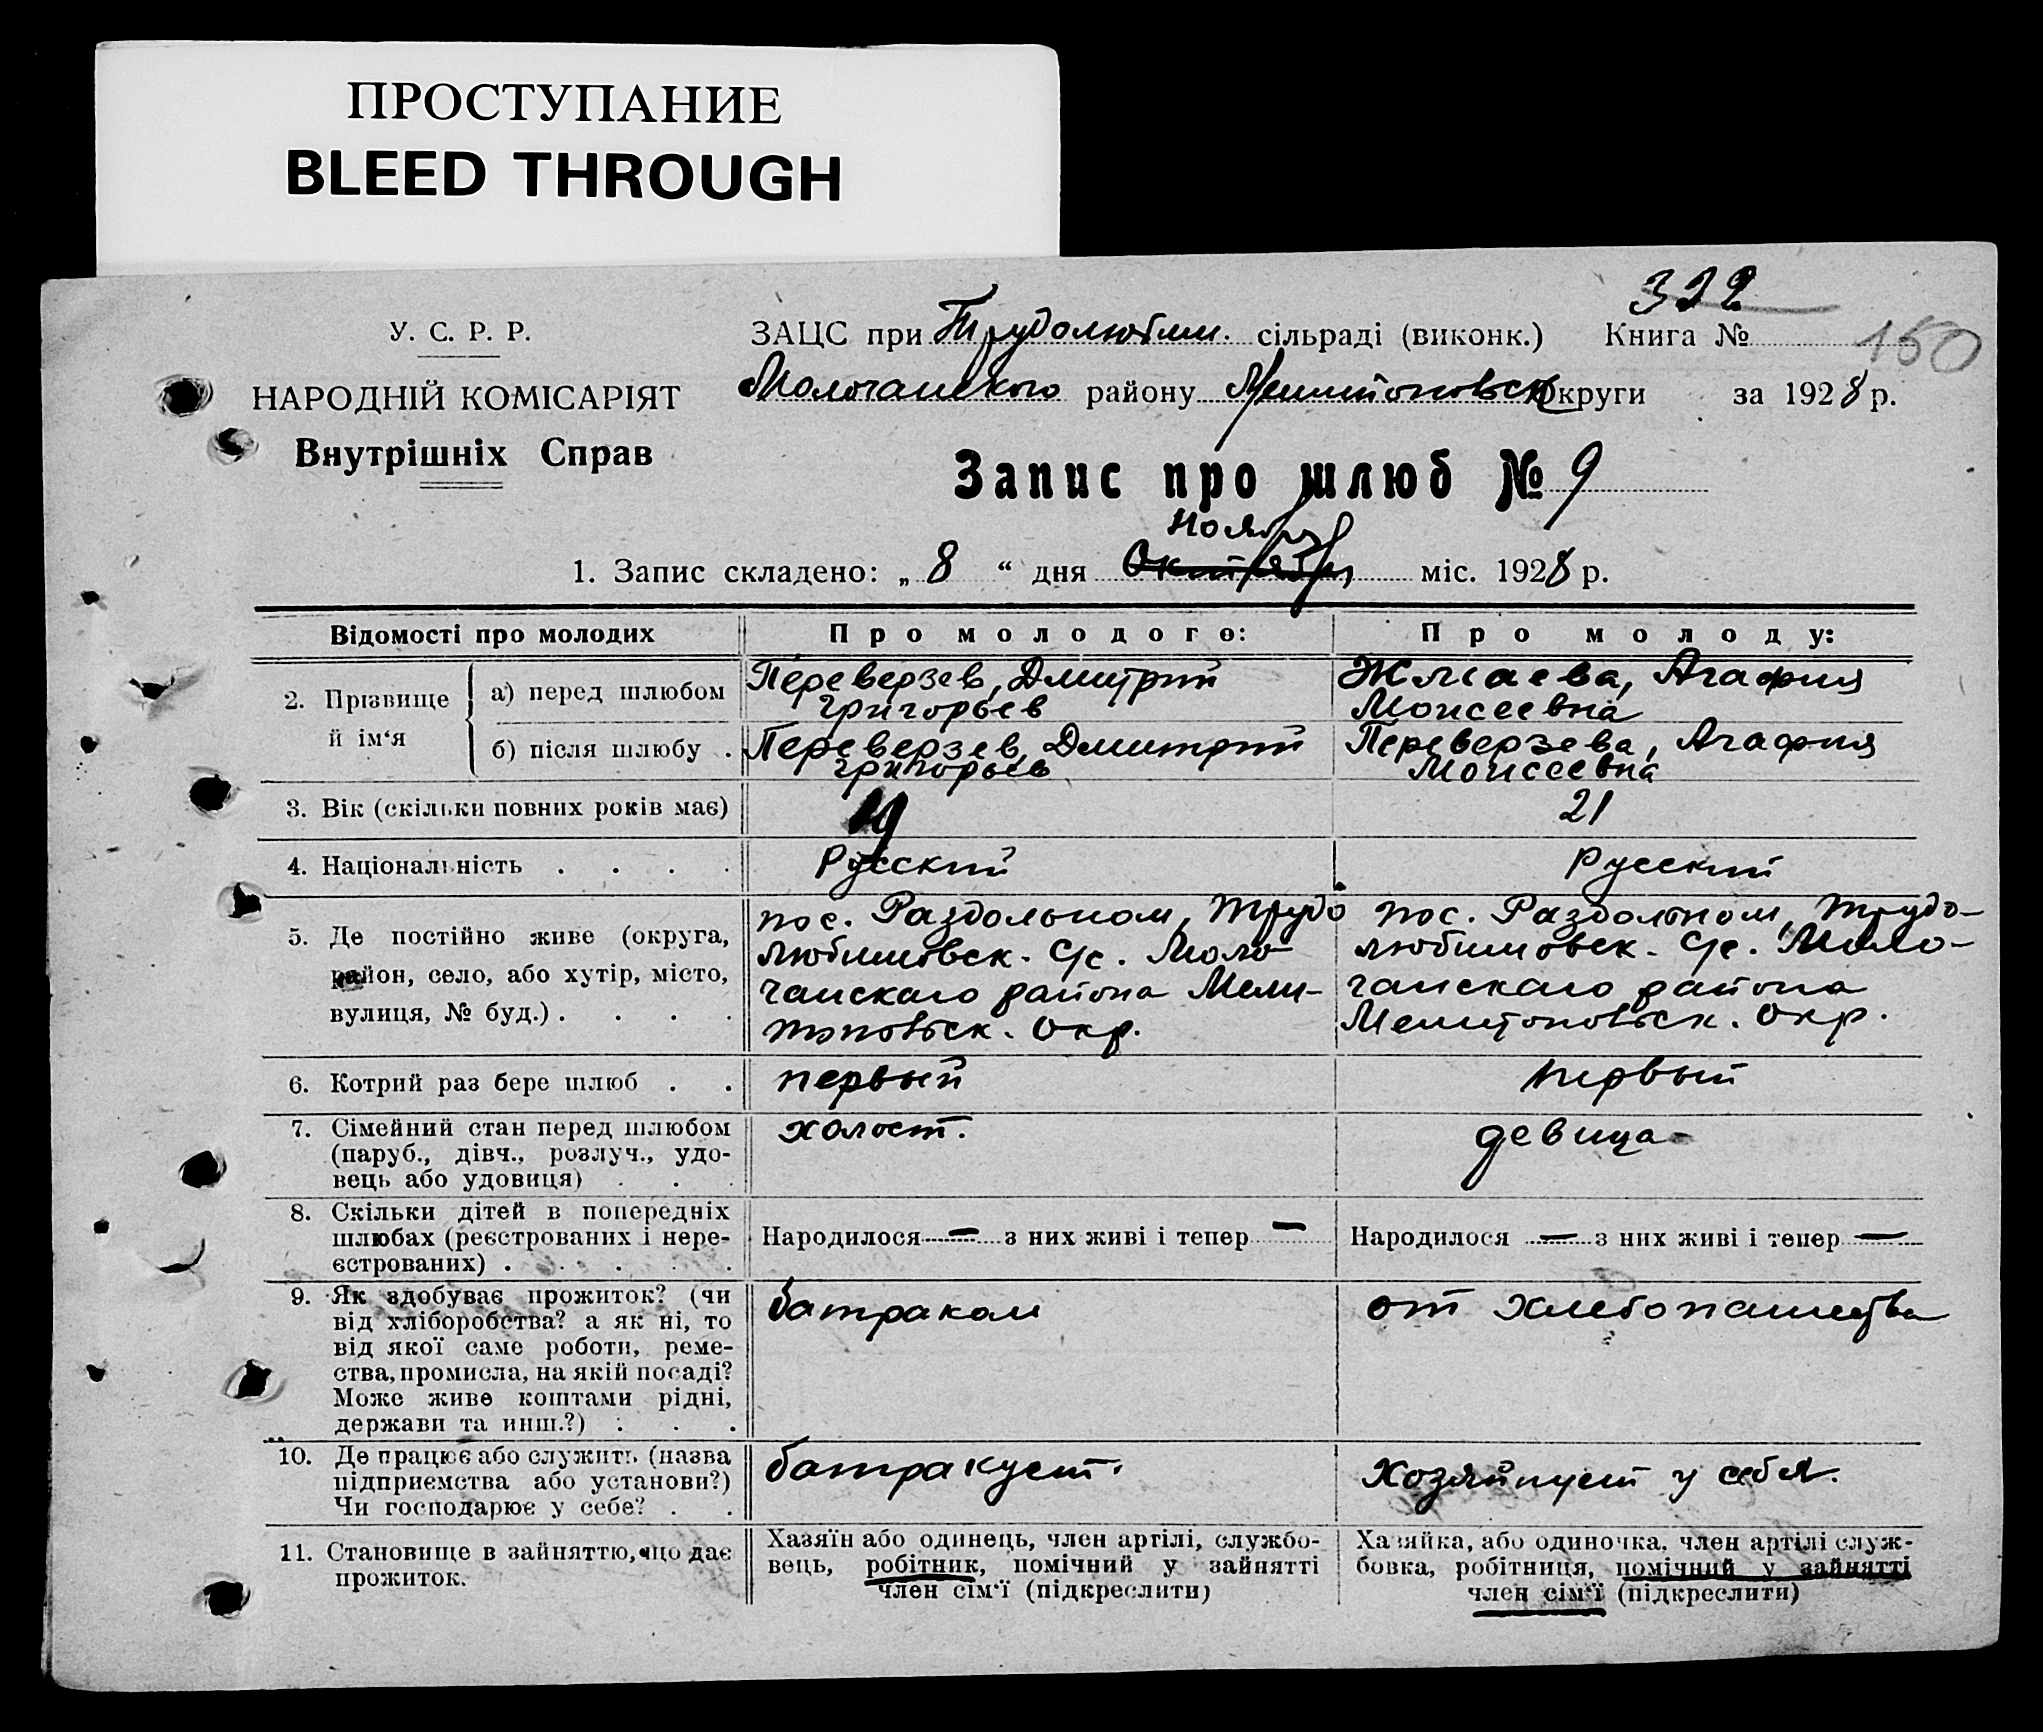 ПРОСТУПАНИЕ
BLEED THROUGH
322
У. С. Р. Р.
ЗАЦС при Трудолюбим. сільраді (виконк.) Книга № 160
НАРОДНІЙ КОМІСАРІЯТ
Молочанского району Мелитоповск округи за 1928 р.
Внутрішніх Справ
Запис про шлюб № 9
Ноября
1. Запис складено: „ 8 “ дня Октября міс. 1928 р.
Відомості про молодих
Про молодого:
Про молоду:
2. Прізвище й ім‘я
а) перед шлюбом
Переверзев, Дмитрий
Григорьев
Агафия
Моисеевна
б) після шлюбу .
Переверзев, Дмитрий
Григорьев
Переверзева, Агафия
Моисеевна
3. Вік (скільки повних років має)
21
4. Національність . . . .
Русский
Русский
5. Де постійно живе (округа,
район, село, або хутір, місто,
вулиця, № буд.) . . . .
пос. Раздольном, Трудо
любимовск. С/с. Моло
чанскаго района Мели-
топовск. Окр.
пос. Раздольном, Трудо-
любимовск. С/с. Моло-
чанскаго района
Мелитоповск. Окр.
6. Котрий раз бере шлюб . .
первый
первый
7. Сімейний стан перед шлюбом
(паруб., дівч., розлуч., удо-
вець або удовиця) . .
холост.
девица
8. Скільки дітей в попередніх
шлюбах (реєстрованих і нере-
єстрованих) . . . . .
Народилося — з них живі і тепер —
Народилося — з них живі і тепер —
9. Як здобуває прожиток? (чи
від хліборобства? а як ні, то
від якої саме роботи, реме-
ства, промисла, на якій посаді?
Може живе коштами рідні,
держави та инш.?) . . .
батраком
от хлебопашества
10. Де працює або служить (назва
підприємства або установи?)
Чи господарює у себе? . .
батракует.
Хозяйнует у себя.
11. Становище в зайняттю, що дає
прожиток.
Хазяїн або одинець, член артілі, службо-
вець, робітник, помічний у зайнятті
член сім‘ї (підкреслити)
Хазяйка, або одиночка, член артілі служ-
бовка, робітниця, помічний у зайнятті
член сім‘ї (підкреслити)